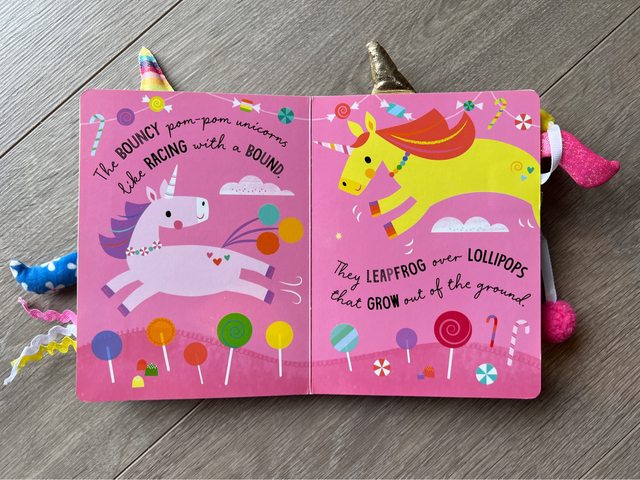 The BOUNCY pom-pom unicorns
like RACING with a BOUND.
They LEAPFROG over LOLLIPOPS
that GROW out of the ground.